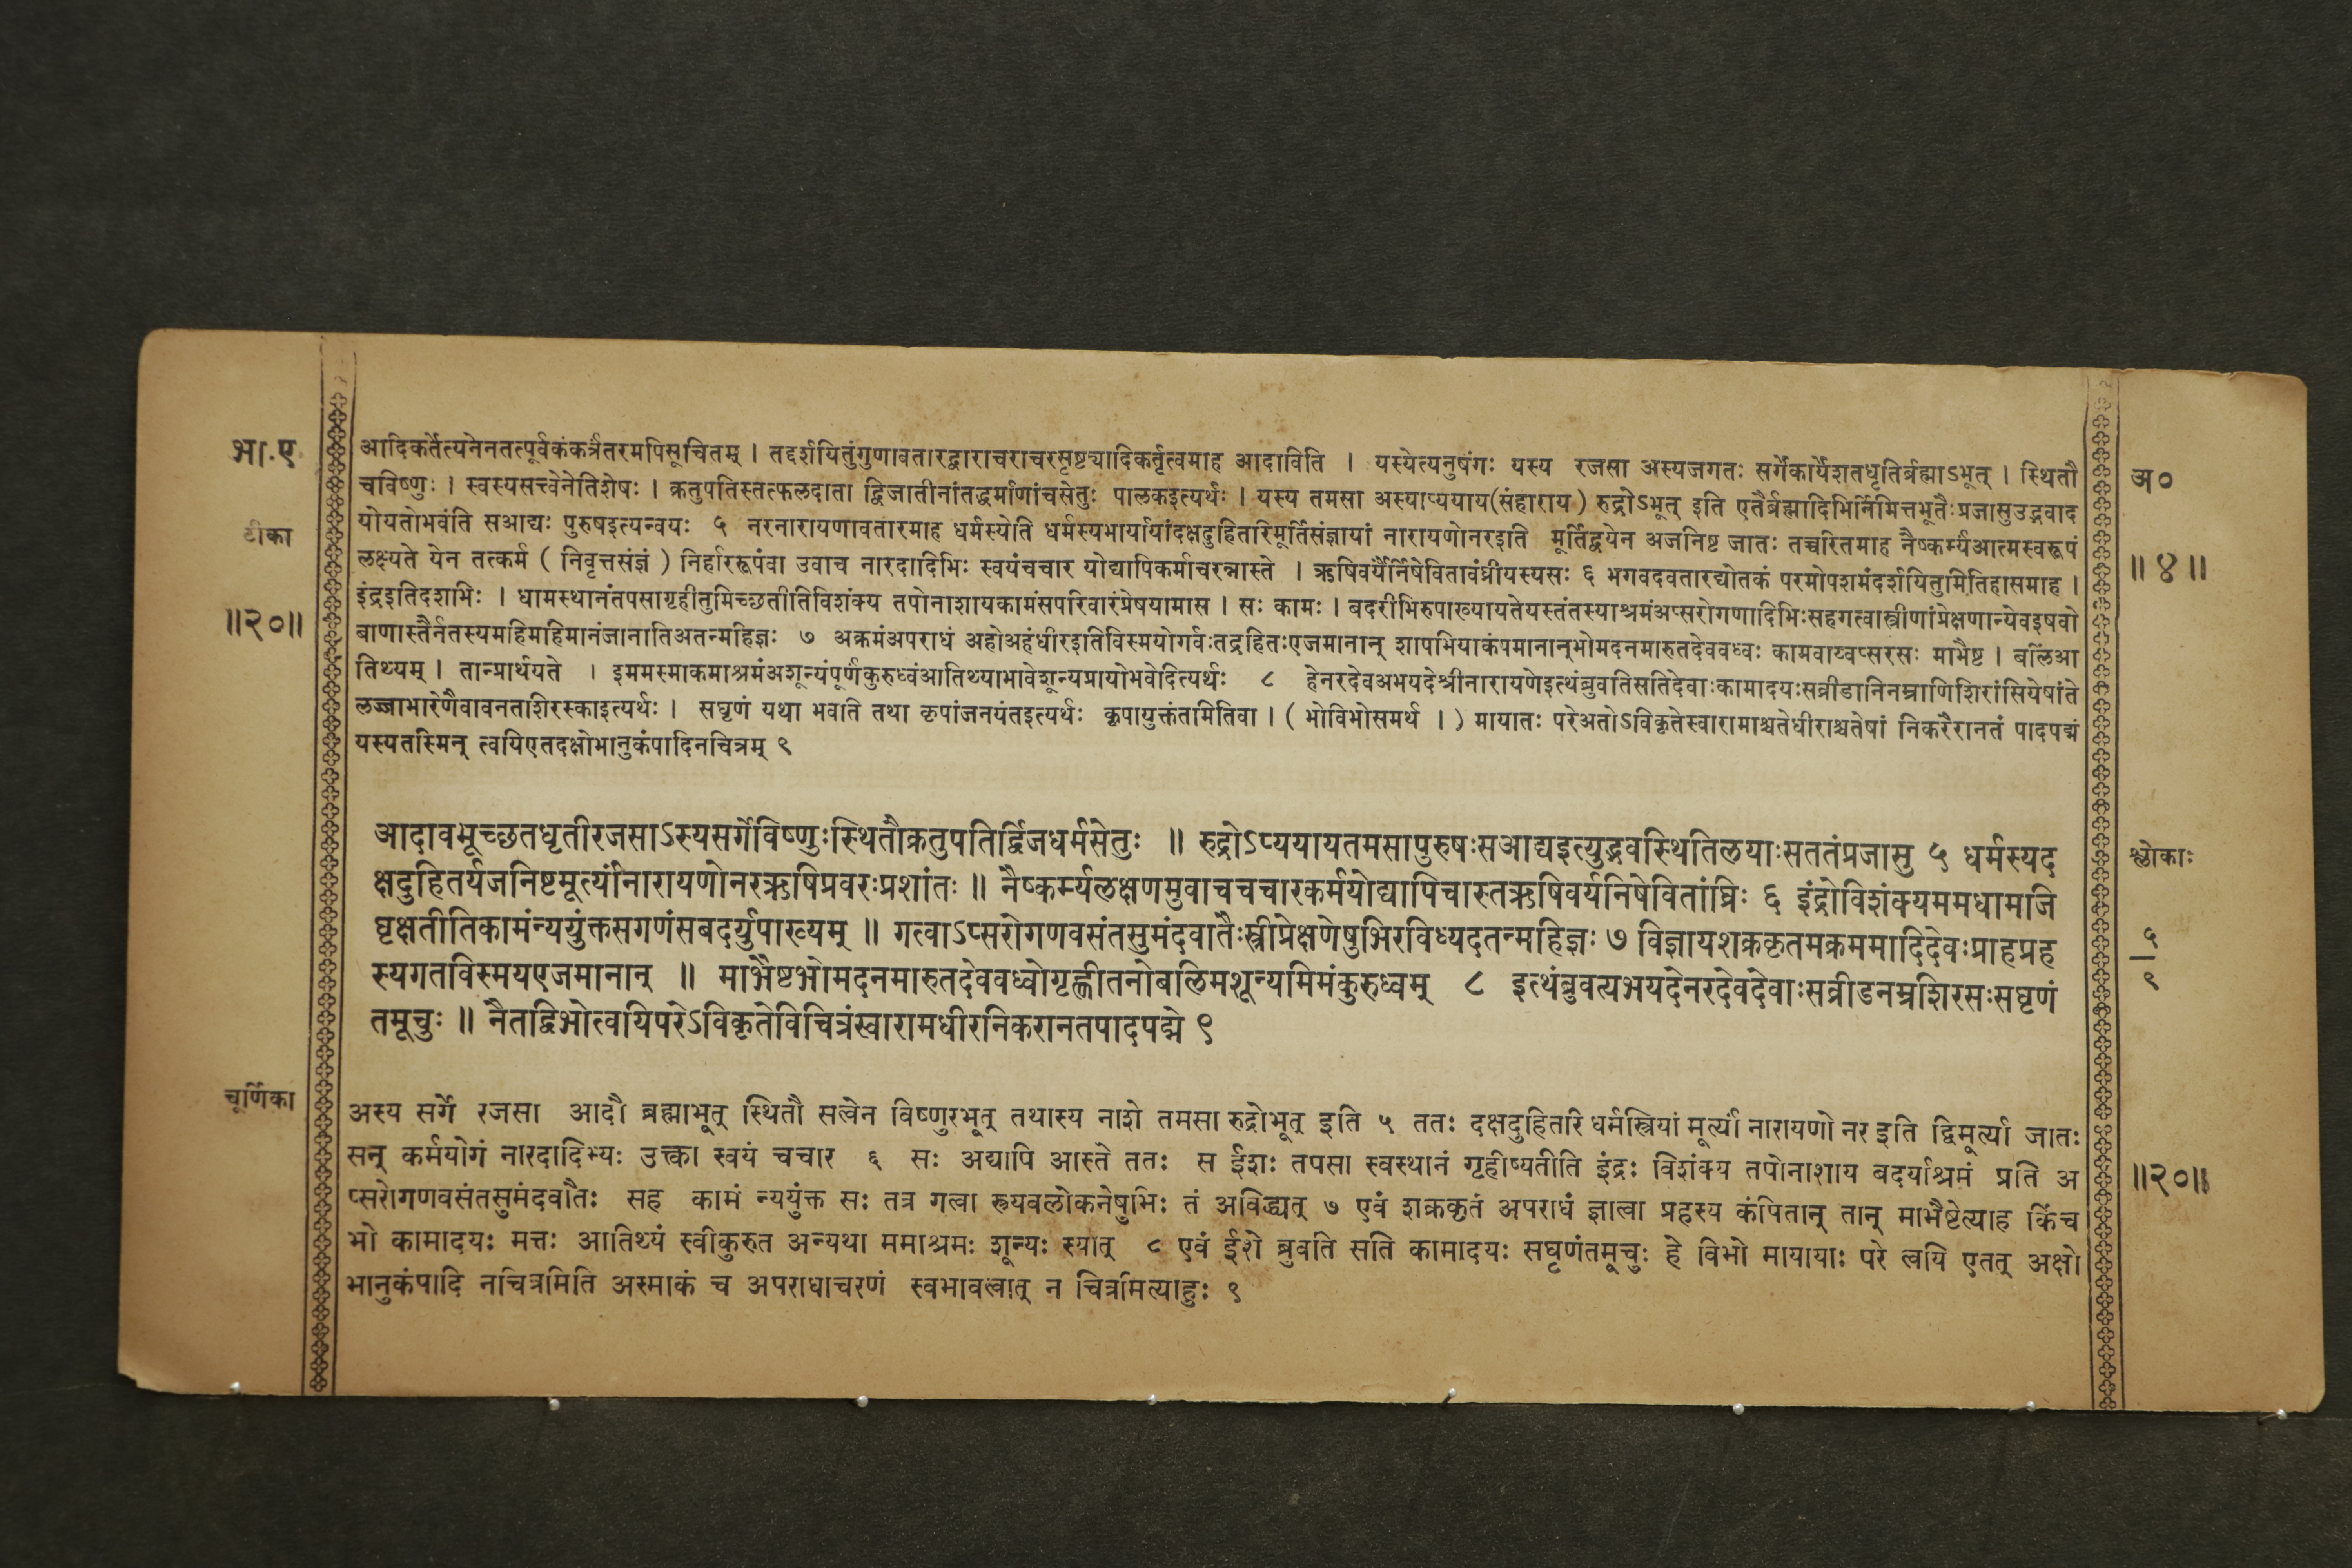 भा.ए
आदिकर्तेत्यनेनतत्पूर्वकंकर्त्रंतरमपिसूचितम् । तद्दर्शयितुंगुणावतारद्वाराचराचरसृष्ट्यादिकर्तृत्वमाह आदाविति । यस्येत्यनुषंगः यस्य रजसा अस्यजगतः सर्गेकार्येशतधृतिर्ब्रह्माऽभूत् । स्थितौ
अ०
चविष्णुः । स्वस्यसत्त्वेनेतिशेषः । क्रतुपतिस्तत्फलदाता द्विजातीनांतद्धर्माणांचसेतुः पालकइत्यर्थः । यस्य तमसा अस्याप्ययाय(संहाराय) रुद्रोऽभूत् इति एतैर्ब्रह्मादिभिर्निमित्तभूतैःप्रजासुउद्भवाद
टीका
योयतोभवंति सआद्यः पुरुषइत्यन्वयः ५ नरनारायणावतारमाह धर्मस्येति धर्मस्यभार्यायांदक्षदुहितरिमूर्तिसंज्ञायां नारायणोनरइति मूर्तिद्वयेन अजनिष्ट जातः तच्चरितमाह नैष्कर्म्यंआत्मस्वरूपं
लक्ष्यते येन तत्कर्म ( निवृत्तसंज्ञं ) निर्हाररूपंवा उवाच नारदादिभिः स्वयंचचार योद्यापिकर्माचरन्नास्ते । ऋषिवर्यैर्निषेवितावंघ्रीयस्यसः ६ भगवदवतारद्योतकं परमोपशमंदर्शयितुमितिहासमाह ।
॥४॥
॥२०॥
इंद्रइतिदशभिः । धामस्थानंतपसागृहीतुमिच्छतीतिविशंक्य तपोनाशायकामंसपरिवारंप्रेषयामास । सः कामः । बदरीभिरुपाख्यायतेयस्तंतस्याश्रमंअप्सरोगणादिभिःसहगत्वास्त्रीणांप्रेक्षणान्येवइषवो
बाणास्तैर्नतस्यमहिमाहिमानंजानातिअतन्महिज्ञः ७ अक्रमंअपराधं अहोअहंधीरइतिविस्मयोगर्वःतद्रहितःएजमानान् शापभियाकंपमानान्भोमदनमारुतदेववध्वः कामवाय्वप्सरसः माभैष्ट । बलिंआ
तिथ्यम् । तान्प्रार्थयते । इममस्माकमाश्रमंअशून्यंपूर्णंकुरुध्वंआतिथ्याभावेशून्यप्रायोभवेदित्यर्थः ८ हेनरदेवअभयदेश्रीनारायणेइत्थंब्रुवतिसतिदेवाःकामादयःसव्रीडानिनम्राणिशिरांसियेषांते
लज्जाभारेणैवावनताशिरस्काइत्यर्थः । सघृणं यथा भवति तथा कृपांजनयंतइत्यर्थः कृपायुक्तंतामितिवा । ( भोविभोसमर्थ । ) मायातः परेअतोऽविकृतेस्वारामाश्चतेधीराश्चतेषां निकरैरानतं पादपद्मं
यस्यतस्मिन् त्वयिएतदक्षोभानुकंपादिनचित्रम् ९
आदावभूच्छतधृतीरजसाऽस्यसर्गेविष्णुःस्थितौक्रतुपतिर्द्विजधर्मसेतुः ॥ रुद्रोऽप्ययायतमसापुरुषःसआद्यइत्युद्भवस्थितिलयाःसततंप्रजासु ५ धर्मस्यद
श्लोकाः
क्षदुहितर्यजनिष्टमूर्त्यांनारायणोनरऋषिप्रवरःप्रशांतः ॥ नैष्कर्म्यलक्षणमुवाचचचारकर्मयोद्यापिचास्तऋषिवर्यनिषेवितांघ्रिः ६ इंद्रोविशंक्यममधामजि
घृक्षतीतिकामंन्ययुंक्तसगणंसबदर्युपाख्यम् ॥ गत्वाऽप्सरोगणवसंतसुमंदवातैःस्त्रीप्रेक्षणेषुभिरविध्यदतन्महिज्ञः ७ विज्ञायशक्रकृतमक्रममादिदेवःप्राहप्रह
५
९
स्यगतविस्मयएजमानान् ॥ माभैष्टभोमदनमारुतदेववध्वोगृह्णीतनोबलिमशून्यमिमंकुरुध्वम् ८ इत्थंब्रुवत्यभयदेनरदेवदेवाःसव्रीडनम्रशिरसःसघृणं
तमूचुः ॥ नैतद्विभोत्वयिपरेऽविकृतेविचित्रंस्वारामधीरनिकरानतपादपद्मे ९
चूर्णिका
अस्य सर्गे रजसा आदौ ब्रह्माभूत् स्थितौ सत्वेन विष्णुरभूत् तथास्य नाशे तमसा रुद्रोभूत् इति ५ ततः दक्षदुहितरि धर्मस्त्रियां मूर्त्यां नारायणो नर इति द्विमूर्त्या जातः
सन् कर्मयोगं नारदादिभ्यः उक्त्वा स्वयं चचार ६ सः अद्यापि आस्ते ततः स ईशः तपसा स्वस्थानं गृहीष्यतीति इंद्रः विशंक्य तपोनाशाय बदर्याश्रमं प्रति अ
॥२०॥
प्सरोगणवसंतसुमंदवातैः सह कामं न्ययुंक्त सः तत्र गत्वा स्त्र्यवलोकनेषुभिः तं अविद्ध्यत् ७ एवं शक्रकृतं अपराधं ज्ञात्वा प्रहस्य कंपितान् तान् माभैष्टेत्याह किंच
भो कामादयः मत्तः आतिथ्यं स्वीकुरुत अन्यथा ममाश्रमः शून्यः स्यात् ८ एवं ईशे ब्रुवति सति कामादयः सघृणंतमूचुः हे विभो मायायाः परे त्वयि एतत् अक्षो
भानुकंपादि नचित्रमिति अस्माकं च अपराधाचरणं स्वभावत्वात् न चित्रमित्याहुः ९